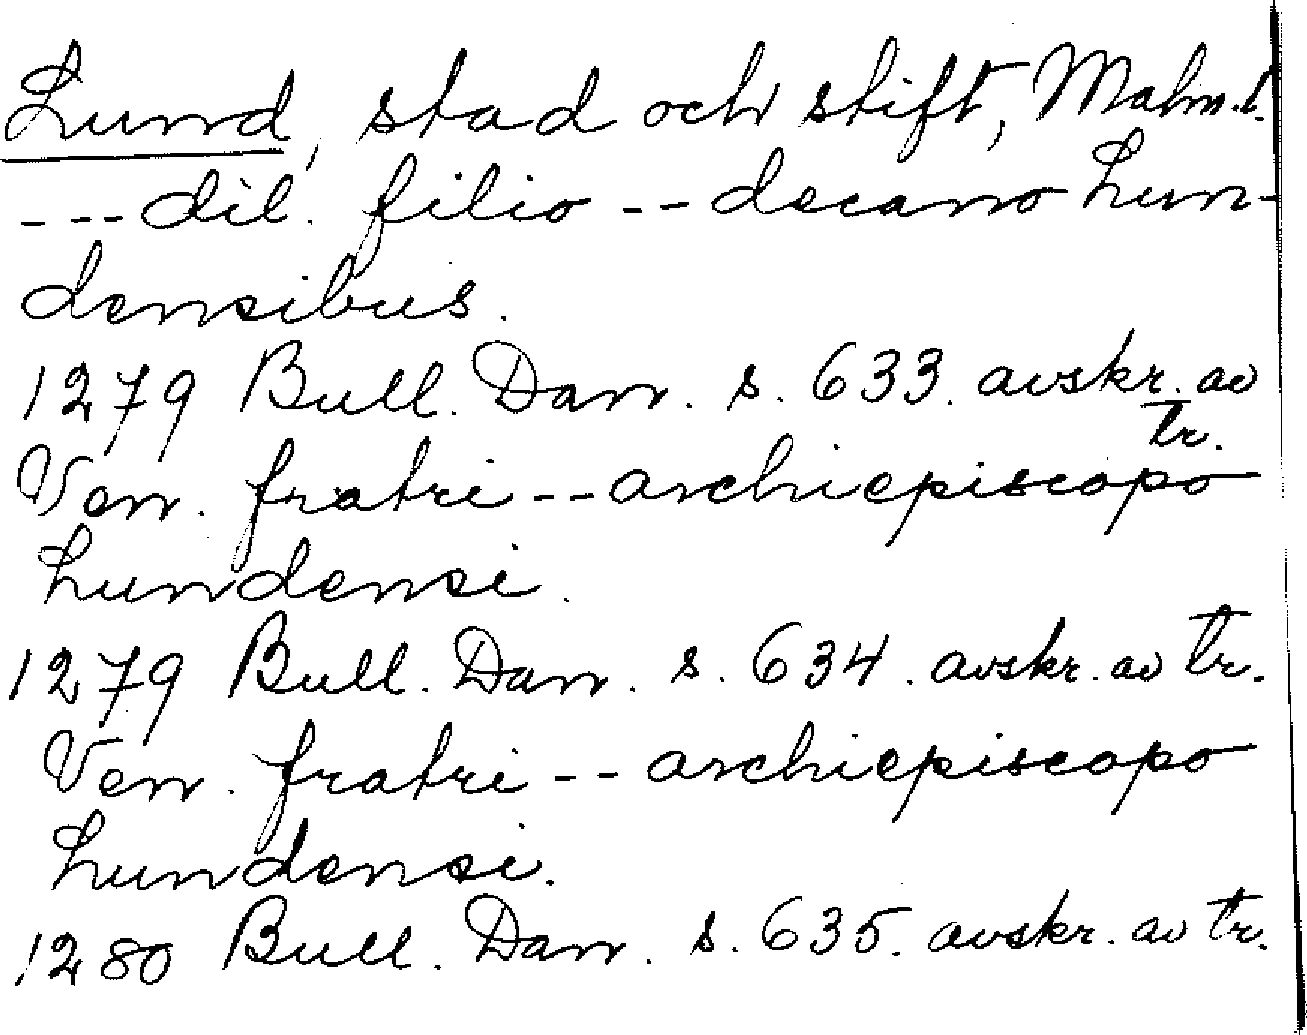 Lund, stad och stift, Malm.l.
--- dil. filio -- decano Lun-
densibus.
1279 Bull. Dan. s. 633. avskr. av
tr.
Ven. fratri -- archiepiscopo
Lundensi.
1279 Bull. Dan. s. 634. avskr. av tr.
Ven. fratri -- archiepiscopo
Lundensi.
1280 Bull. Dan. s. 635. avskr. av tr.